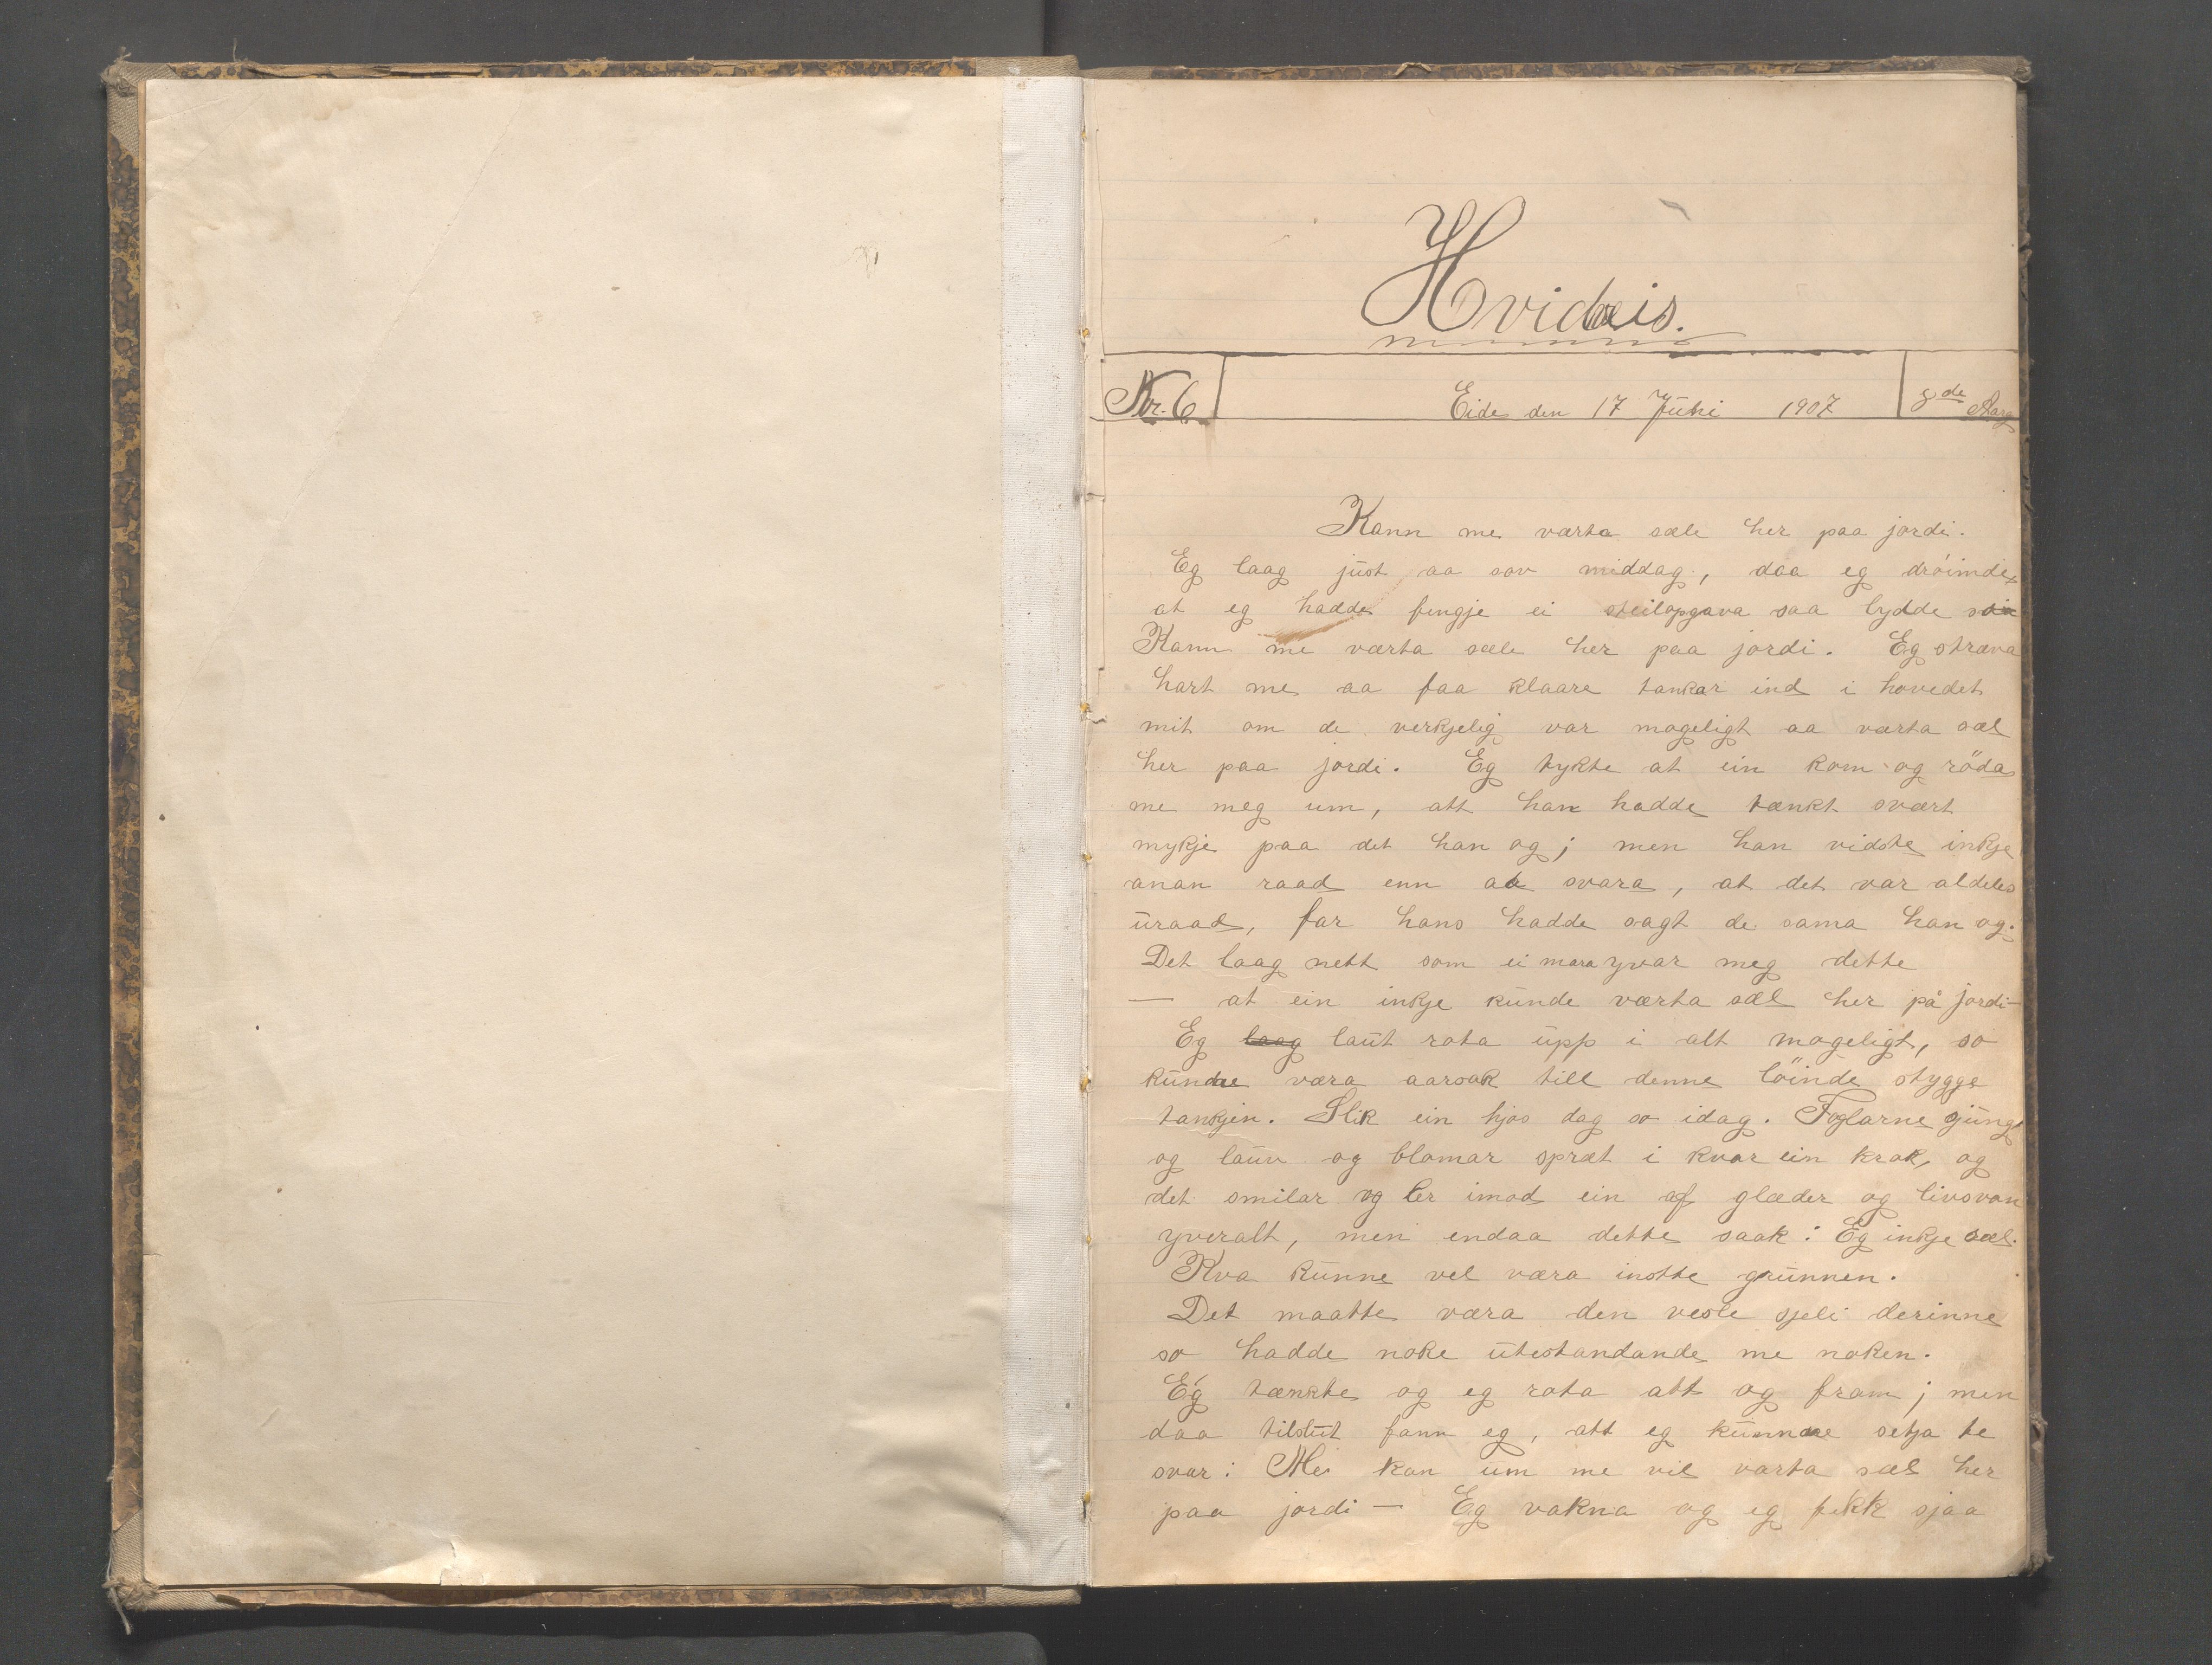 Hvidveis.
Nr. 6
Eide den 17 Juni 1907
8de Aarg
Kann me værta sæle her paa jordi.
Eg laag just aa sov middag, daa eg dröimde,
at eg hadde fengje ei steilopgava saa lydde
Kann me værta sæle her paa jordi. Eg stræva
hart me aa faa klaare tankar ind i hovedet
mit om de verkjelig var mogeligt aa værta sæl
her paa jordi. Eg tykte at ein kom og röda
me meg um, att han hadde tænkt svært
mykje paa det han og; men han vidste inkje
anan raad enn aa svara, at det var aldeles
uraad, far hans hadde sagt de sama han og.
Det laag nett som ei mara yvar meg dette
— at ein inkje kunde værta sæl her på jordi —
Eg laag laut rota upp i alt mogeligt, so
kunde væra aarsak till denne löinde stygge
tankjen. Slik ein hjos dag so idag. Foglarne sjung
og lauv og blomar spræt i kvar ein krok, og
det smilar og ler imod ein af glæder og livsvon
yveralt, men endaa dette saak: Eg inkje sæl.
Kva kunne vel væra instte grunnen.
Det maatte væra den vesle sjeli derinne
so hadde noke utestandande me noken.
Eg tænkte og eg rota att og fram; men
daa tilslut fann eg, att eg kunne setja te
svar: Me kan um me vil varta sæl her
paa jordi — Eg vakna og eg fekk sjaa